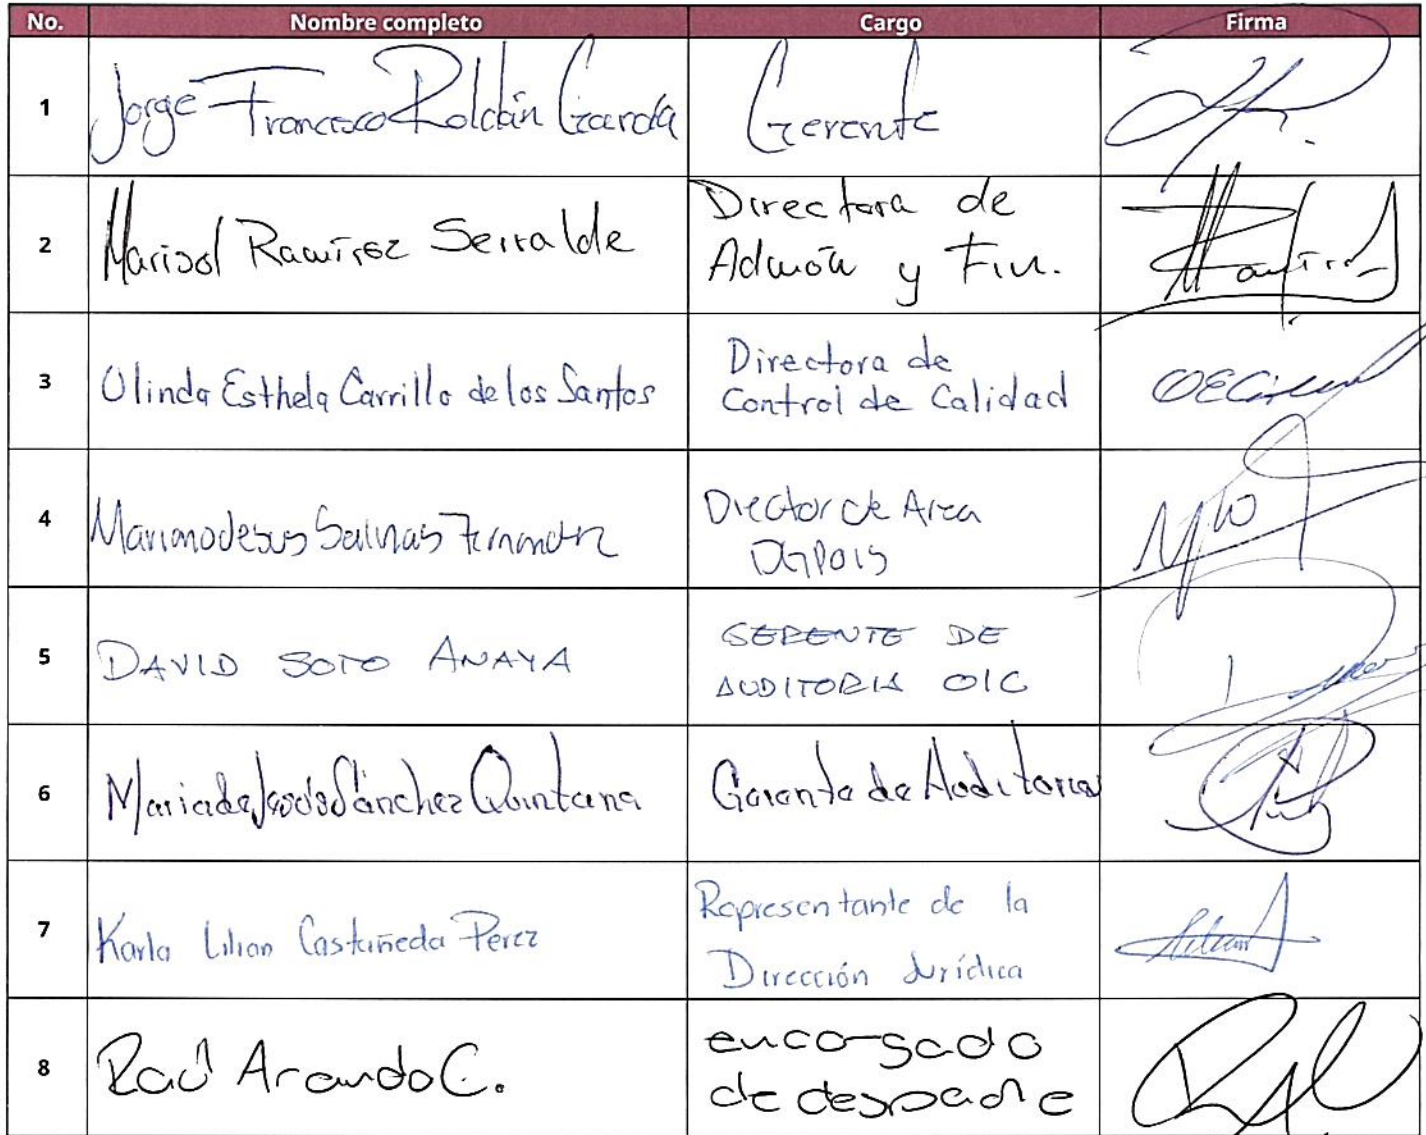 No. Nombre completo Cargo Firma
1 Jorge Francisco Roldán García Gerente
2 Marisol Ramírez Serralde Directora de
Admón y Fin.
3 Olinda Esthela Carrillo de los Santos Directora de
Control de Calidad
4 Mariano Jesus Salinas Director de Area
5 DAVID SOTO ANAYA GERENTE DE
AUDITORIA OIC
6 Maria de Jesús Sánchez Quintana Gerente de Auditorias
7 Karla Lilian Castañeda Perez Representante de la
Dirección Jurídica
8 Raúl C. encargado
de despache